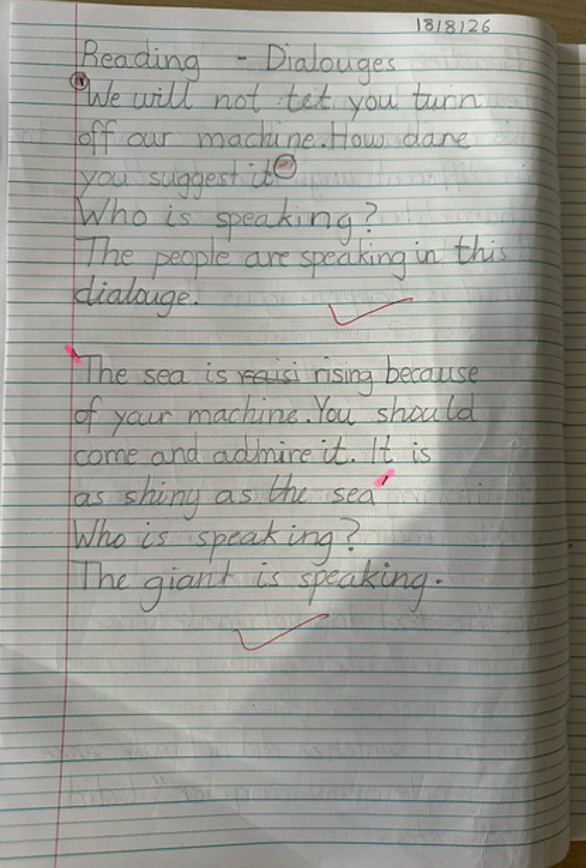 18/8/26
Reading - Dialouges
"We will not tet you turn
off our machine. How dare
you suggest it"
Who is speaking?
The people are speaking in this
dialouge.
'The sea is raisi rising because
of your machine. You should
come and admire it. It is
as shiny as the sea'
Who is speaking?
The giant is speaking.